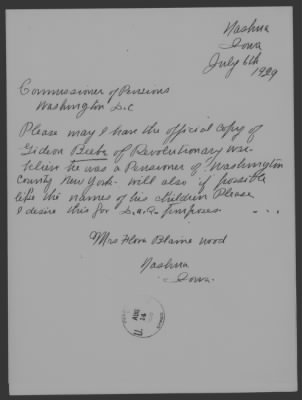 Nashua
Iowa
July 6th
1929
Commissioner of Pensions
Washington D.C
Please may I have the official copy of
Gideon Beebe of Revolutionary War
believe he was a Pensioner of Washington
County New York - will also if possible
like the names of his children Please
I desire this for D.A.R. purposes.
Mrs Flora Blaine Wood
Nashua
Iowa.
AUG
14